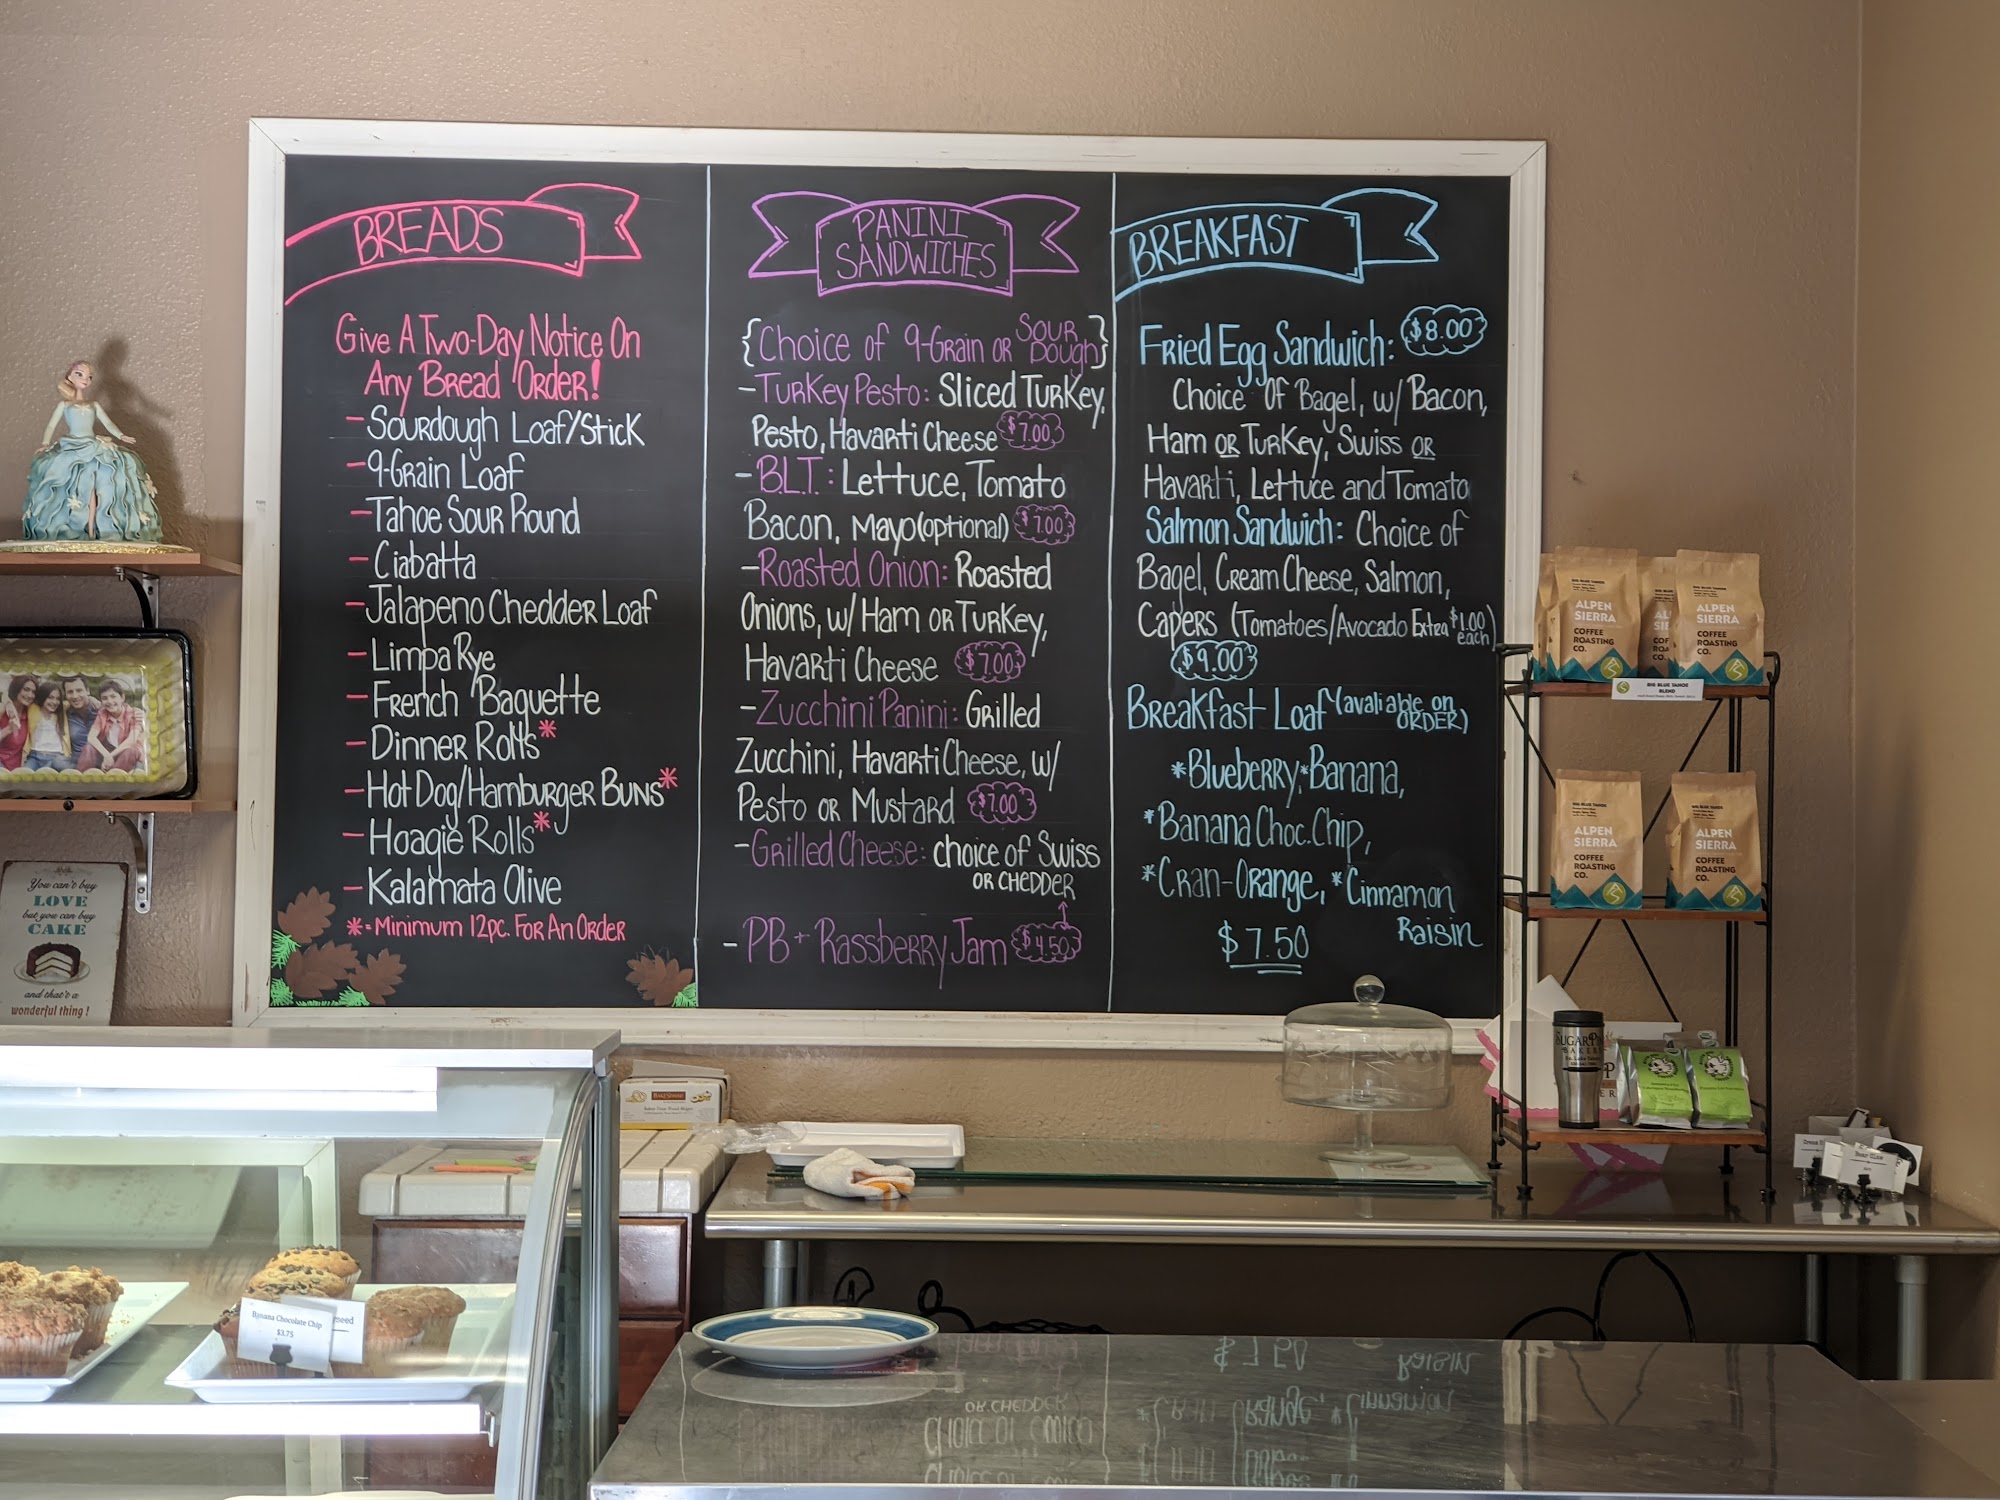 BREADS
Give A Two-Day Notice On
Any Bread Order!
- Sourdough Loaf/Stick
- 9-Grain Loaf
- Tahoe Sour Round
- Ciabatta
- Jalapeno Cheddar Loaf
- Limpa Rye
- French Baguette
- Dinner Rolls*
- Hot Dog/Hamburger Buns*
- Hoagie Rolls*
- Kalamata Olive
* = Minimum 12pc. For An Order
PANINI
SANDWICHES
{Choice of 9-Grain or Sour Dough}
- Turkey Pesto: Sliced Turkey,
Pesto, Havarti Cheese $7.00
- B.L.T.: Lettuce, Tomato
Bacon, Mayo (optional) $7.00
- Roasted Onion: Roasted
Onions, w/ Ham or Turkey,
Havarti Cheese $7.00
- Zucchini Panini: Grilled
Zucchini, Havarti Cheese, w/
Pesto or Mustard $7.00
- Grilled Cheese: choice of Swiss
or Chedder
- PB + Rassberry Jam $4.50
BREAKFAST
Fried Egg Sandwich: $8.00
Choice Of Bagel, w/ Bacon,
Ham or Turkey, Swiss or
Havarti, Lettuce and Tomato
Salmon Sandwich: Choice of
Bagel, Cream Cheese, Salmon,
Capers (Tomatoes/Avocado Extra $1.00 each)
$9.00
Breakfast Loaf (avaliable on
order)
*Blueberry, *Banana,
*Banana Choc. Chip,
*Cran-Orange, *Cinnamon
Raisin
$7.50
You can't buy
LOVE
but you can buy
CAKE
and that's a
wonderful thing!
BIG BLUE TAHOE
ALPEN
SIERRA
COFFEE
ROASTING
CO.
BIG BLUE TAHOE
ALPEN
SIERRA
COFFEE
ROASTING
CO.
BIG BLUE TAHOE
BLEND
BIG BLUE TAHOE
ALPEN
SIERRA
COFFEE
ROASTING
CO.
BIG BLUE TAHOE
ALPEN
SIERRA
COFFEE
ROASTING
CO.
Banana Chocolate Chip
$3.75
Bear Claw